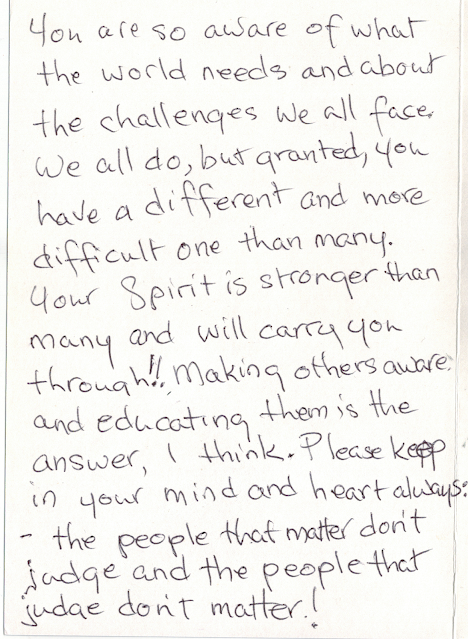 You are so aware of what
the world needs and about
the challenges we all face.
We all do, but granted, you
have a different and more
difficult one than many.
Your Spirit is stronger than
many and will carry you
through!! Making others aware
and educating them is the
answer, I think. Please keep
in your mind and heart always:
- the people that matter don't
judge and the people that
judge don't matter!